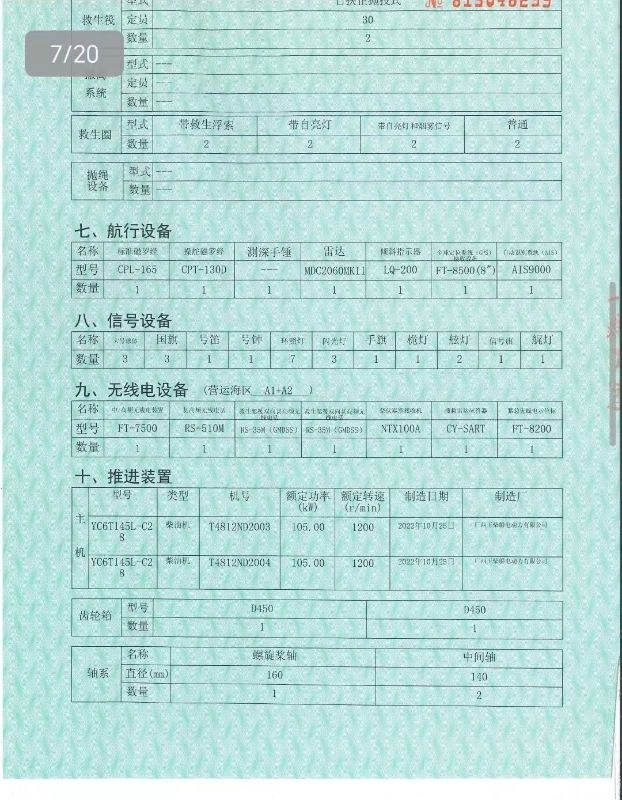 7/20
型式 自扶正抛投式 № 813040233
救生筏 定员 30
数量 2
型式 ---
系统 定员 ---
数量 ---
救生圈 型式 带救生浮索 带自亮灯 带自亮灯和烟雾信号 普通
数量 2 2 2 2
抛绳设备 型式 ---
数量 ---
七、航行设备
名称 标准磁罗经 操舵磁罗经 测深手锤 雷达 倾斜指示器 全球定位系统(GPS)接收设备 自动识别系统(AIS)
型号 CPL-165 CPT-130D --- MDC2060MK11 LQ-200 FT-8500(8") AIS9000
数量 1 1 1 1 1 1 1
八、信号设备
名称 国旗 号笛 号钟 环照灯 闪光灯 手旗 桅灯 舷灯 信号旗 艉灯
数量 3 3 1 1 7 3 1 1 2 1 1
九、无线电设备 (营运海区 A1+A2 )
名称 中/高频无线电装置 甚高频无线电话 救生艇筏双向甚高频无线电话 救生艇筏双向甚高频无线电话 搜救雷达应答器
型号 FT-7500 RS-510M RS-35M (GMDSS) RS-35M (GMDSS) NTX100A CY-SART FT-8200
数量 1 1 1 1 1 1 1
十、推进装置
型号 类型 机号 额定功率(kW) 额定转速(r/min) 制造日期 制造厂
主机 YC6T145L-C28 柴油机 T4812ND2003 105.00 1200 2022年10月25日 广西玉柴船电动力有限公司
YC6T145L-C28 柴油机 T4812ND2004 105.00 1200 2022年10月25日 广西玉柴船电动力有限公司
齿轮箱 型号 D450 D450
数量 1 1
轴系 名称 螺旋桨轴 中间轴
直径(mm) 160 140
数量 1 2